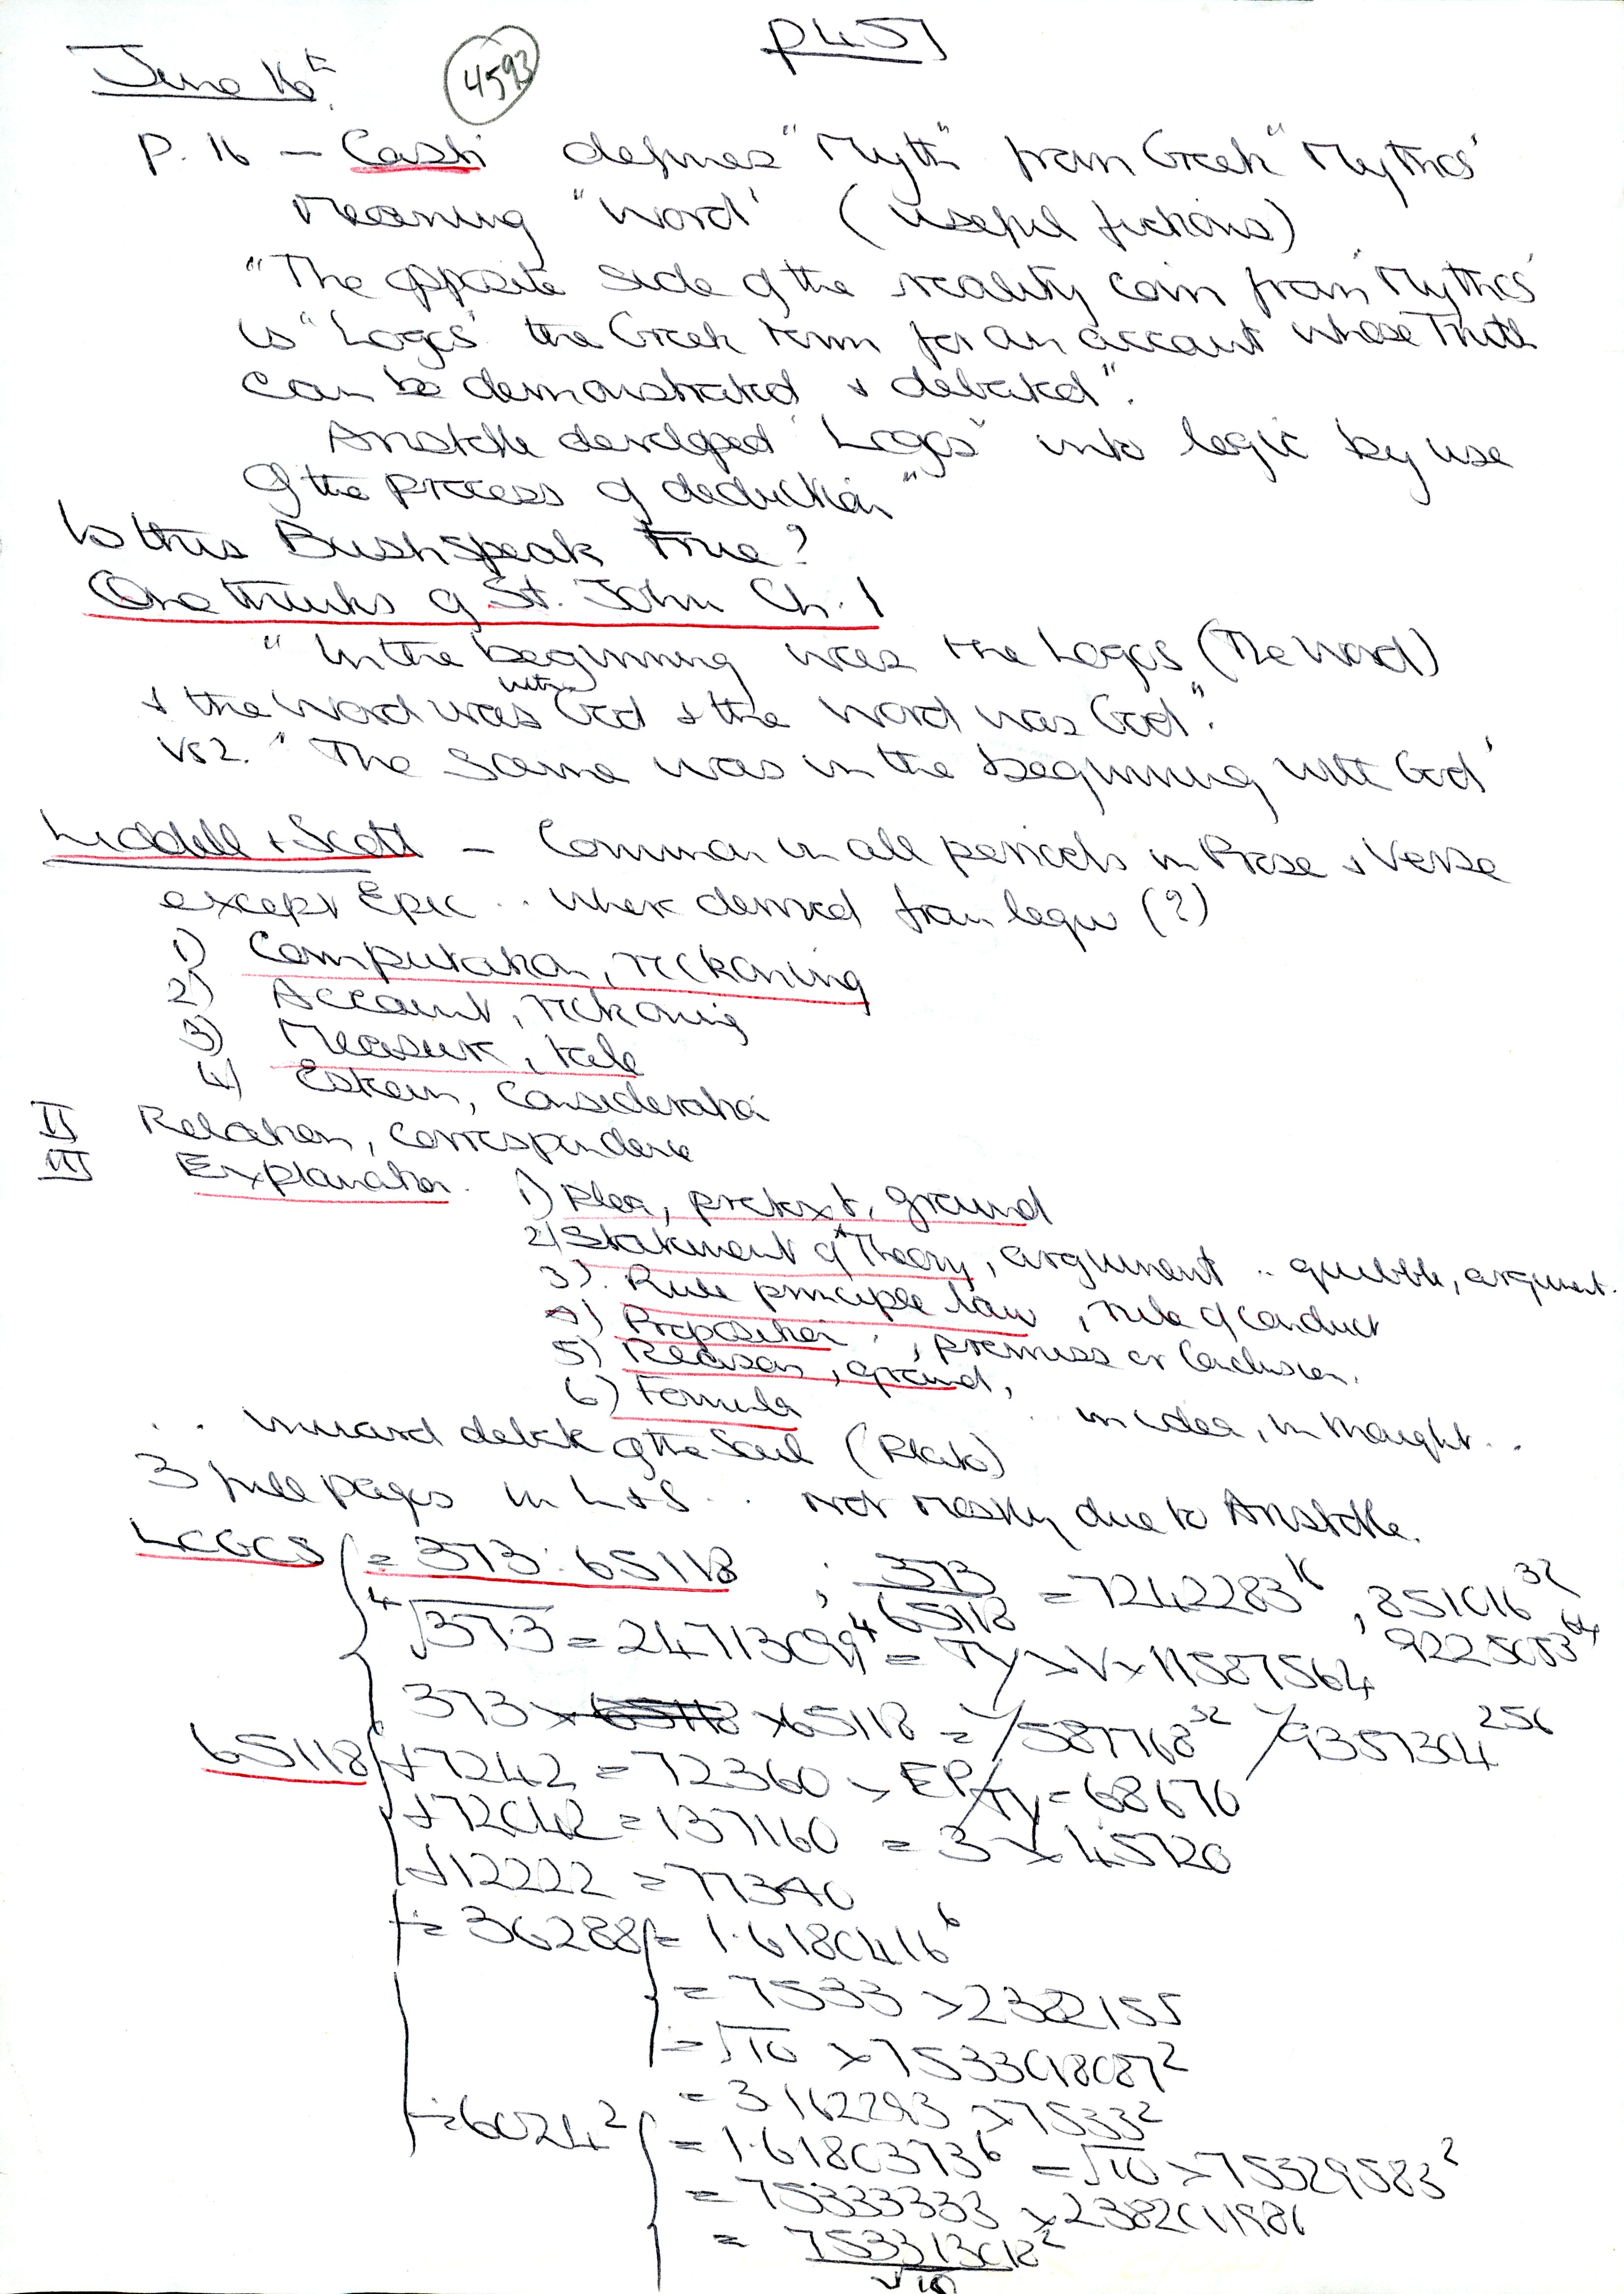 p451
June 16th.
4593
P. 16 — Cash defines "Myth" from Greek "Mythos'
Meaning "Word' (useful fictions)
"The opposite side of the reality coin from "Mythos'
is "Logos' the Greek term for an account whose Truth
can be demonstrated & debated".
Aristotle developed "Logos" into logic by use
of the process of deduction"
Is this Bushspeak true?
One thinks of St. John Ch. 1
"In the beginning was the Logos (The Word)
& the Word was with God & the Word was God".
Vs 2. "The same was in the beginning with God'
Liddell & Scott — Common in all periods in Prose & Verse
except Epic .. where derived from legw (?)
1) Computation, reckoning
2) Account, reckoning
3) Measure, tale
4) Esteem, Consideration
II Relation, correspondence
III Explanation. 1) Plea, pretext, ground
2) Statement of Theory, argument .. quibble, argument.
3). Rule principle law, rule of conduct
4) Proposition, premiss or Conclusion.
5) Reason, ground,
6) Formula .. in idea, in thought ..
.. inward debate of the Soul (Plato)
3 full pages in L & S .. Not mostly due to Aristotle.
LOGOS = 373 : 65118 ; 373/65118 = 7242283^16, 851016^32
4√373 = 24713099^4 = Ty × V × 11587564 9225083^64
373 × 65118 = 1/587768^32 1/9357304^256
65118 + 7242 = 72360 > EP/Ty = 68670
+ 72042 = 137160 = 3 × 45720
+ 12222 = 77340
÷ = 36288 = 1.6180416^6
= 7533 × 2382155
= √10 × 753301808 7^2
= 3.162293 × 7533^2
÷ = 6024^2 = 1.6180373^6 = √10 × 75329583^2
= 75333333 × 238201986
= 753313018^2
√10